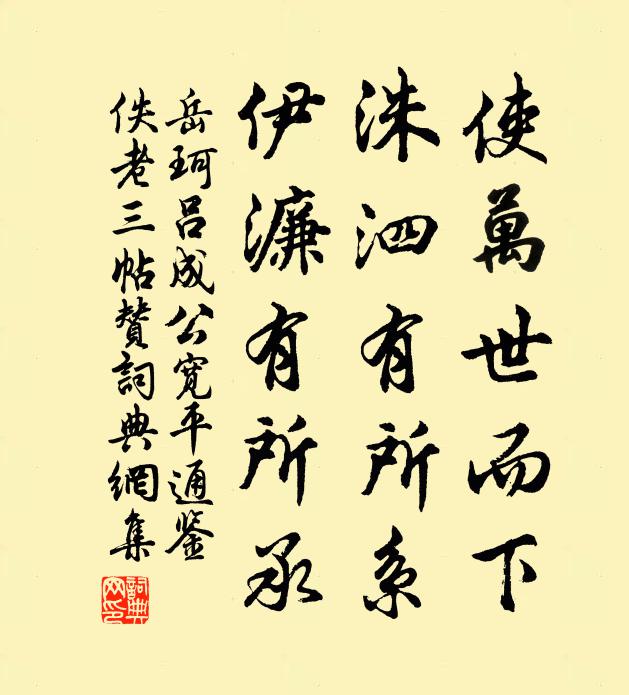 使萬世而下
洙泗有所系
伊濂有所承
岳珂吕成公寬平通鉴
佚老三帖贊詞典網集
詞典
网印